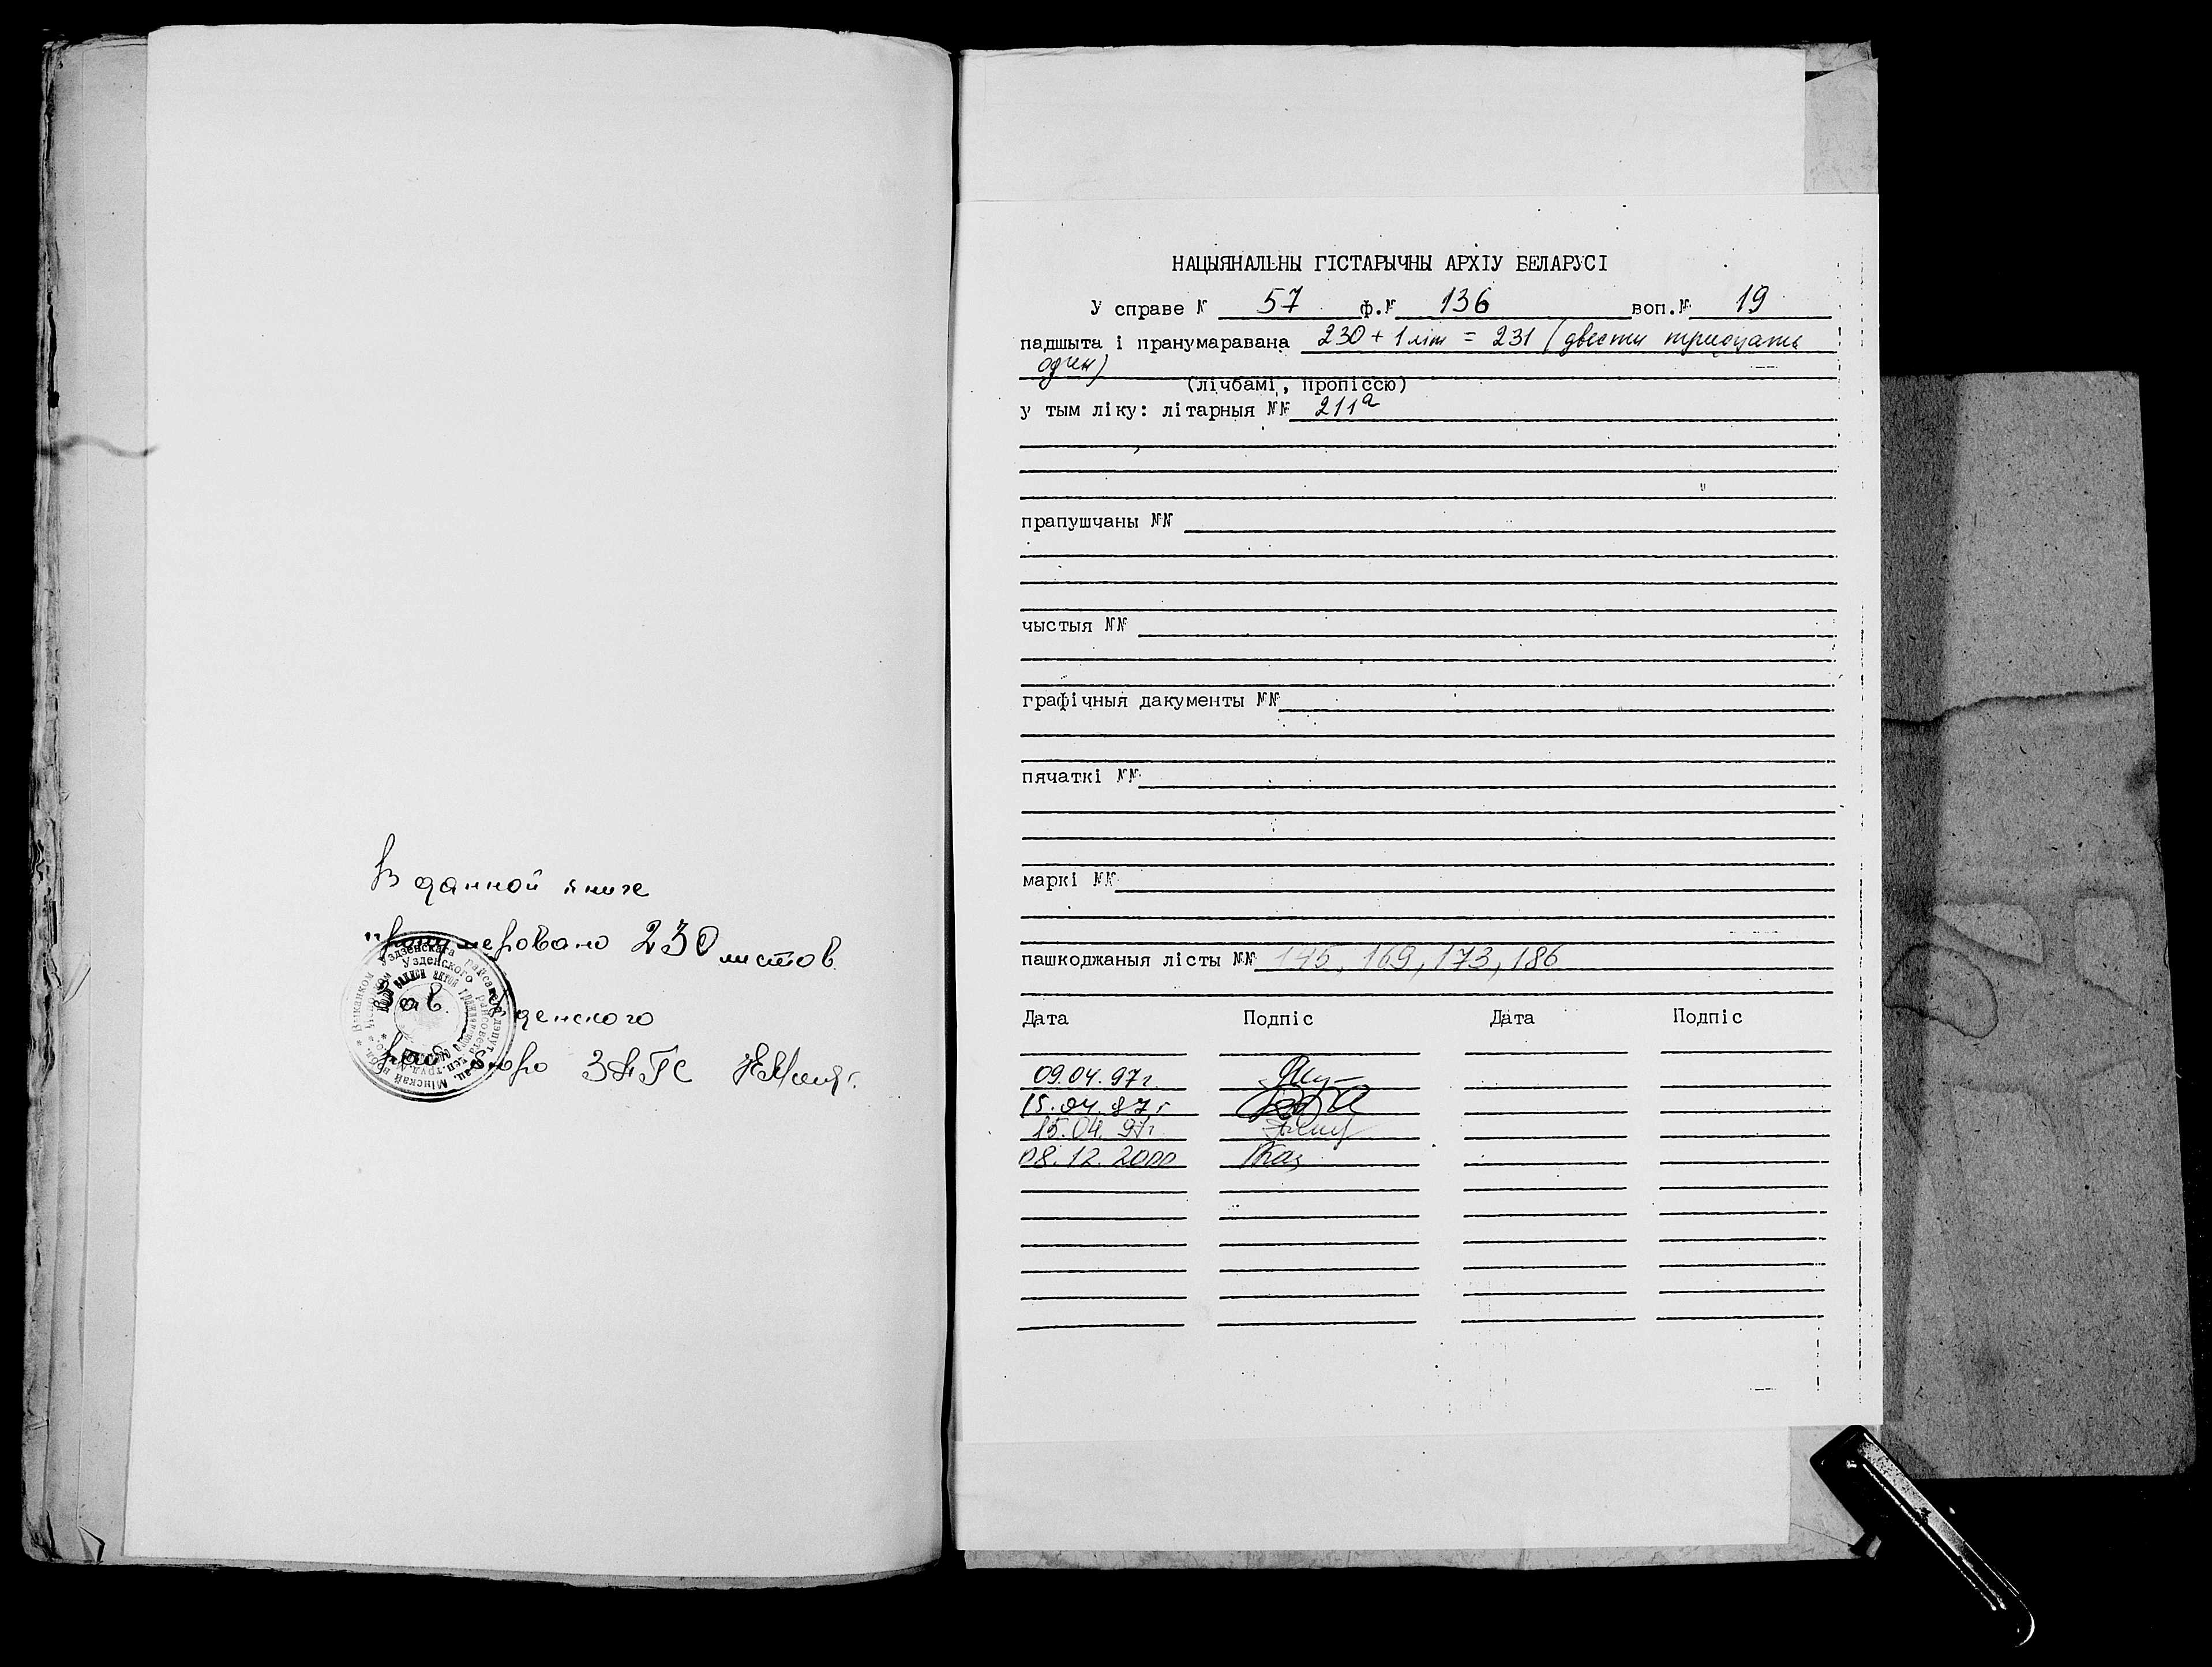 В данной книге
пронумеровано 230 листов.
Зав. Узденского
бюро ЗАГС
НАЦЫЯНАЛЬНЫ ГІСТАРЫЧНЫ АРХІУ БЕЛАРУСІ
У справе № 57 ф.№ 136 воп.№ 19
падшыта і пранумаравана 230 + 1 літ = 231 (двести тридцать
один)
(лічбамі, пропіссю)
у тым ліку: літарныя №№ 211а
прапушчаны №№
чыстыя №№
графічныя дакументы №№
пячаткі №№
маркі №№
пашкоджаныя лісты №№ 145, 169, 173, 186
Дата Подпіс Дата Подпіс
09.04.97г.
15.04.97г
15.04.97г.
08.12.2000